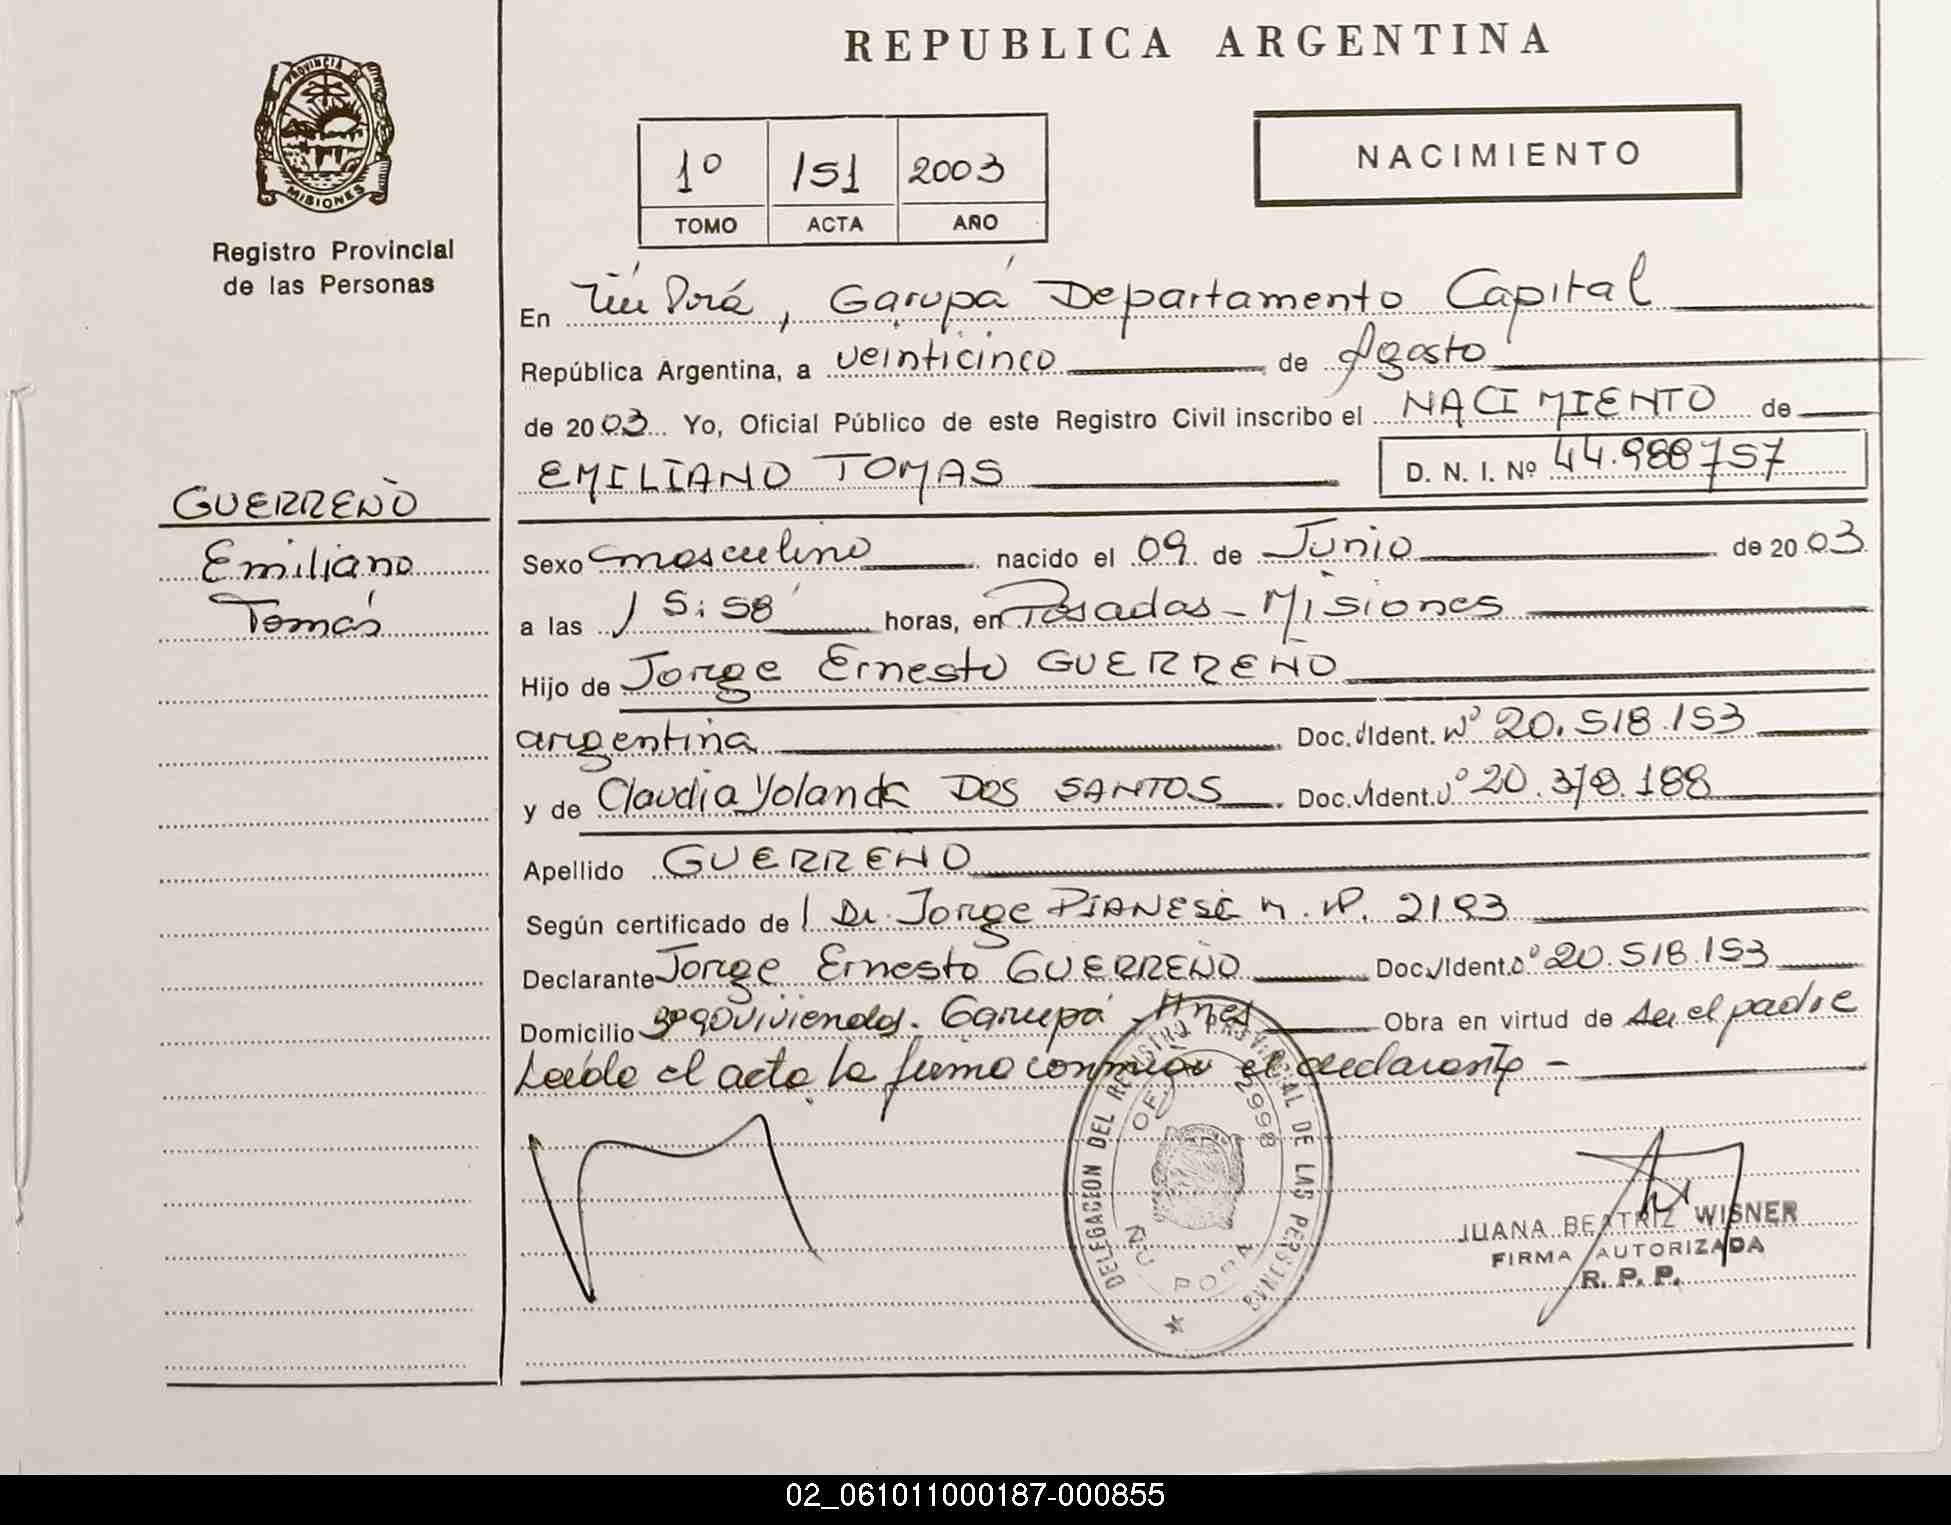 REPUBLICA ARGENTINA
PROVINCIA DE
MISIONES
Registro Provincial
de las Personas
1º 151 2003
TOMO ACTA AÑO
NACIMIENTO
En Ñu Porá, Garupá Departamento Capital
República Argentina, a veinticinco de Agosto
de 2003 Yo, Oficial Público de este Registro Civil inscribo el NACIMIENTO de
EMILIANO TOMAS D. N. I. Nº 44.988757
GUERREÑO
Emiliano
Tomás
Sexo masculino nacido el 09 de Junio de 2003
a las 15:58 horas, en Posadas - Misiones
Hijo de Jorge Ernesto GUERREÑO
argentina Doc. Ident. Nº 20.518.153
y de Claudia Yolanda DOS SANTOS Doc. Ident. Nº 20.378.188
Apellido GUERREÑO
Según certificado de l Dr. Jorge PIANESE M. P. 2193
Declarante Jorge Ernesto GUERREÑO Doc. Ident. Nº 20.518.153
Domicilio viviendas. Garupá - Mnes Obra en virtud de ser el padre
Leída el acta la firma conmigo el declarante -
DELEGACION DEL REGISTRO PROVINCIAL DE LAS PERSONAS
OF. 2998
ÑU PORA
JUANA BEATRIZ WISNER
FIRMA AUTORIZADA
R. P. P.
02_061011000187-000855